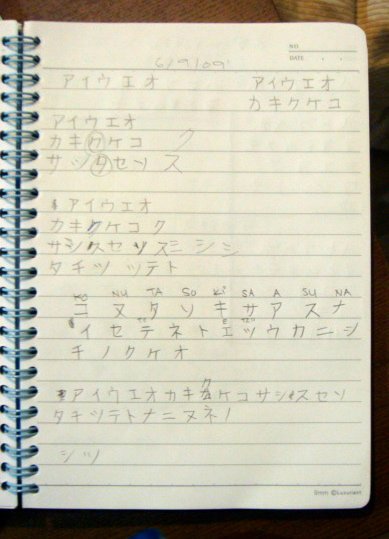 NO.
DATE
6/9/09
アイウエオ アイウエオ
カキクケコ
アイウエオ
カキウケコ ク
サシタセソ ス
アイウエオ
カキクケコ ク
サシスセソ スニシシ
タチツ ツテト
KO NU TA SO Ki SA A SU NA
コ ヌ タ ソ キ サ ア ス ナ
イ セ テ ネ ト エ ツ ウ カ ニ シ
チ ノ ク ケ オ
ク
アイウエオカキケコサシスセソ
タチツテトナニヌネノ
シツ
8mm